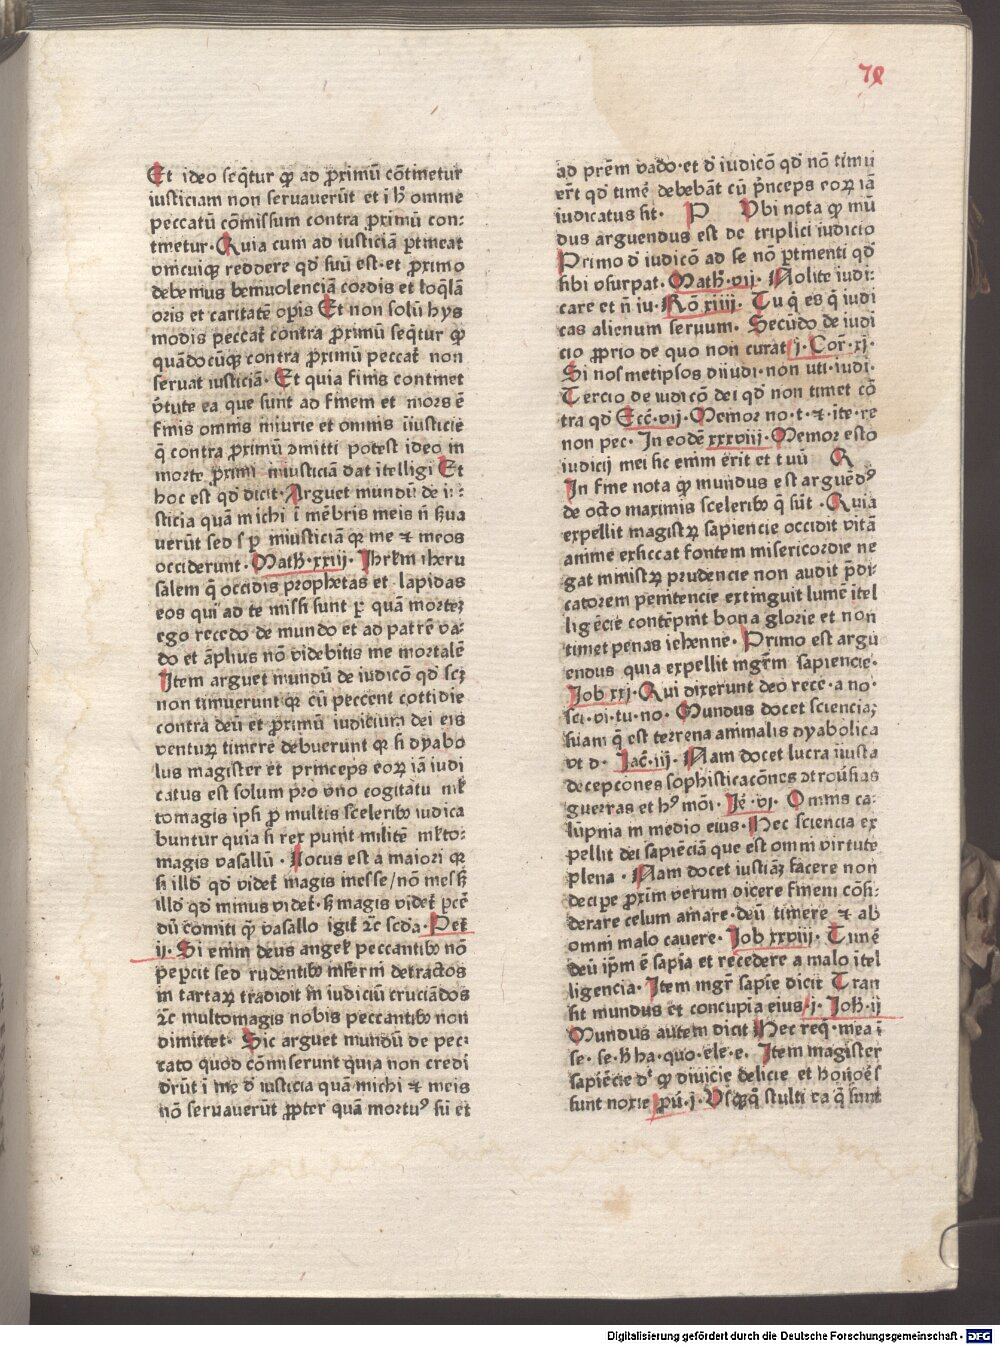 78
Et ideo seq̃tur ꝙ ad ꝓximũ cõtinetur
iusticiam non seruauerũt et i h̵ omne
peccatũ cõmissum contra ꝓximũ con⸗
tinetur. Quia cum ad iusticiã ꝑtineat
vnicuiqꝫ reddere qd̵ suũ est. et ꝓximo
debemus beniuolenciã cordis et loq̃lã
oris et caritatẽ oꝑis Et non solũ hys
modis peccat̃ contra ꝓximũ seq̃tur ꝙ
quãdocũqꝫ contra ꝓximũ peccat̃ non
seruat iusticiã. Et quia finis continet
v̾tute ea que sunt ad finem et mors ẽ
finis omnis iniurie et omnis iiusticie
q̃ contra ꝓximũ ↄmitti potest ideo in
morte ꝓximi iniusticiã dat itelligi Et
hoc est qd̵ dicit. Arguet mundũ de iu⸗
sticia quã michi i mẽbris meis ñ ẜua
uerũt sed s ꝑ iniusticiã qꝛ me ⁊ meos
occiderunt. Math̵. xxiij. Ihrl̵em iheru
salem q̃ occidis prophetas et lapidas
eos qui ad te missi sunt ꝑ quã mortez
ego recedo de mundo et ad patrẽ va⸗
do et ãplius nõ videbitis me mortalẽ
Item arguet mundũ de iudicõ qd̵ scꝫ
non timuerunt qꝛ cũ peccent cottidie
contra deũ et ꝓximũ iudicium dei eis
venturꝝ timere debuerunt qꝛ si dyabo
lus magister et princeps eoꝝ iã iudi
catus est solum pro vno cogitatu ml̵
tomagis ipsi ꝓ multis sceleribꝰ iudica
buntur quia si rex punit militẽ ml̵to⸗
magis vasallũ. Locus est a maiori qꝛ
si illd̵ qd̵ videt̃ magis inesse/nõ inest ẜ
illd̵ qd̵ minus videt̃. ẜ magis videt̃ ꝑcẽ
dũ comiti ꝙ vasallo igit̃ ⁊c̃ scd̵a. Pet̃
ij. Si enim deus angel̵ peccantibꝰ nõ
peꝑcit sed rudentibꝰ inferni detractos
in tartaꝝ tradidit in iudiciũ cruciãdos
⁊c̃ multomagis nobis peccantibꝰ non
dimittet. Sic arguet mundũ de pec⸗
cato quod cõmiserunt quia non credi
drũt i me d̵ iusticia quã michi ⁊ meis
nõ seruauerũt ꝓpter quã mortuꝰ sũ et
ad prẽm vado. et d̵ iudicõ qd̵ nõ timu
er̃t qd̵ timẽ debebãt cũ p̃nceps eoꝝ iã
iudicatus sit. P Vbi nota ꝙ mũ
dus arguendus est de triplici iudicio
Primo d̵ iudicõ ad se nõ ꝑtinenti qd̵
sibi vsurpat. Math̵. vij. Nolite iudi⸗
care et ñ iu. Rõ xiiij. Tu q̃ es q̃ iudi
cas alienum seruum. Secũdo de iudi
cio ꝓprio de quo non curat j. Cor̃. xj.
Si nosmetipsos diiudi. non uti. iudi.
Tercio de iudicõ dei qd̵ non timet cõ
tra qd̵ Ecc̃. vij. Memor no. t. ⁊. ite. re
non pec. In eodẽ xxxviij. Memor esto
iudicij mei sic enim erit et tuũ R
In fine nota ꝙ mundus est arguẽdꝰ
de octo maximis sceleribꝰ q̃ sũt. Quia
expellit magistꝝ sapiencie occidit vitã
anime exsiccat fontem misericordie ne
gat ministꝝ prudencie non audit p̃di⸗
catorem penitencie extinguit lumẽ itel
ligẽcie contẽpnit bona glorie et non
timet penas iehenne. Primo est argu
endus quia expellit mgr̃m sapiencie.
Job xxj. Qui dixerunt deo rece. a no.
sci. vi. tu. no. Mundus docet scienciaꝫ
suam q̃ est terrena animalis dyabolica
vt d. Jac̃. iij. Nam docet lucra iiusta
decepcones sophisticacõnes ↄtrouͤsias
guerras et hꝰ mõi. Jẽ. vj. Omnis ca⸗
lũpnia in medio eius. Hec sciencia ex
pellit dei sapiẽciã que est omni virtute
plena. Nam docet iusticiaꝫ facere non
decipe ꝓxim̃ verum dicere finem cõsi⸗
derare celum amare. deũ timere ⁊ ab
omni malo cauere. Job xxviij. Timẽ
deũ ip̃m ẽ sapĩa et recedere a malo itel
ligencia. Item mgr̃ sapiẽ dicit Tran
sit mundus et concupĩa eius. j. Joh̵. ij
Mundus autem dicit Hec reqͥ. mea ĩ
se. se. h̵ ha. quo. ele. e. Item magister
sapiẽcie dᵗ ꝙ diuicie delicie et honoẽs
sunt noxie pũ. j. Vsqꝫqͦ stulti ea q̃ sunt
Digitalisierung gefördert durch die Deutsche Forschungsgemeinschaft - DFG